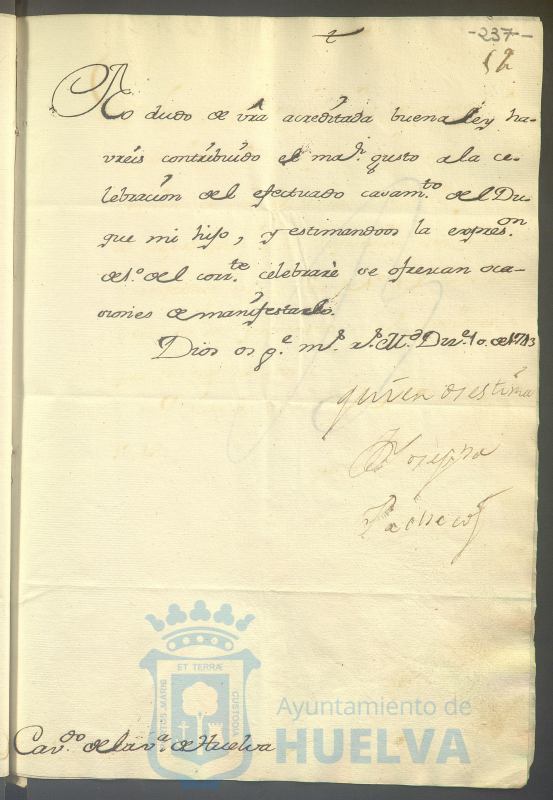 -237-
No dudo de vra acreditada buena ley ha-
vreis contribuido el maр. gusto a la ce-
lebracion del efectuado casam.to del Du-
que mi hijo, y estimandoos la expres.on
de 1.o del corr.te celebrarè se ofrezcan oca-
siones de manifestarlo.
Dios os g.e m.s a.s M.d Dz.e 10. de 1713
quien os estima
Josepha
Pacheco
ET TERRÆ
PORTUS MARIS
CUSTODIA
Ayuntamiento de
HUELVA
Cav.do de la v.a de Huelva